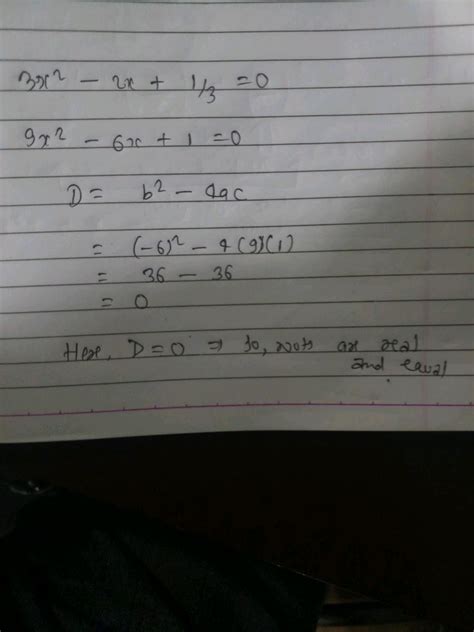 3x² - 2x + 1/3 = 0
9x² - 6x + 1 = 0
D = b² - 4ac
= (-6)² - 4(9)(1)
= 36 - 36
= 0
Here, D = 0 ⇒ So, roots are real
and equal